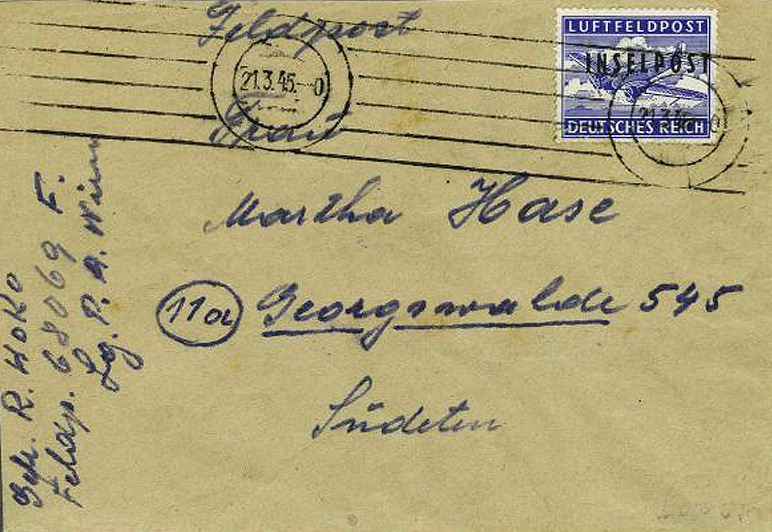 Feldpost
LUFTFELDPOST
INSELPOST
DEUTSCHES REICH
21.3.45.-0
21.3.45.-0
Martha Hase
11a Georgswalde 545
Sudeten
R. Hoko
Feldp. 68069 F.
Lg. P. A. Wien